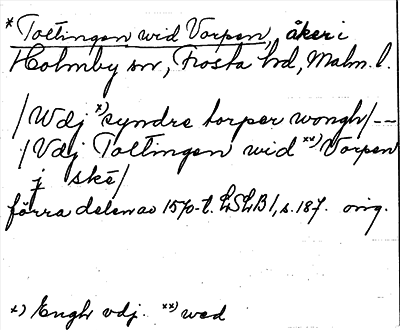 * Toltingen wid Vorpen, åker i
Holmby sn, Frosta hd, Malm. l.
/Wdj x) syndre torper wongh/--
/Vdj Toltingen wid xx) Vorpen
j skè/
förra delen av 1570-t. LSLB 1, s. 187. orig.
x) Engh vdj. xx) wed